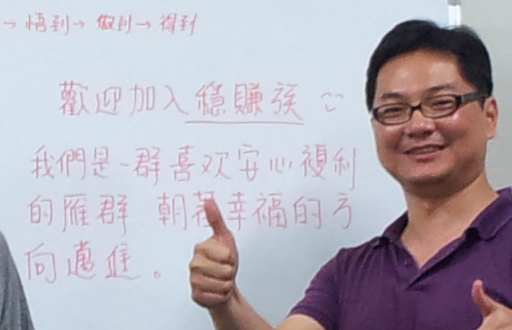 → 悟到 → 做到 → 得到
歡迎加入穩賺族
我們是一群喜欢安心複利
的雁群 朝著幸福的方
向邁進。